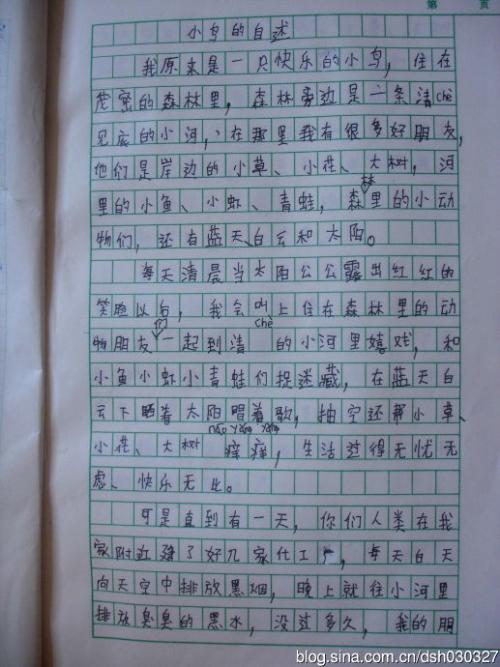 第 页
小鸟的自述
我原来是一只快乐的小鸟，住在
茂密的森林里，森林旁边是一条清chè
见底的小河，在那里我有很多好朋友，
他们是岸边的小草、小花、大树，河
里的小鱼、小虾、青蛙，森林里的小动
物们，还有蓝天、白云和太阳。
每天清晨当太阳公公露出红红的
笑脸以后，我会叫上住在森林里的动
物朋友们一起到清chè的小河里嬉戏，和
小鱼小虾小青蛙们捉迷藏，在蓝天白
云下晒着太阳唱着歌，抽空还帮小草、
小花、大树náo yǎng yǎng痒痒，生活过得无忧无
虑、快乐无比。
可是直到有一天，你们人类在我
家附近建了好几家化工厂，每天白天
向天空中排放黑烟，晚上就往小河里
排放臭臭的黑水，没过多久，我的朋
blog.sina.com.cn/dsh030327